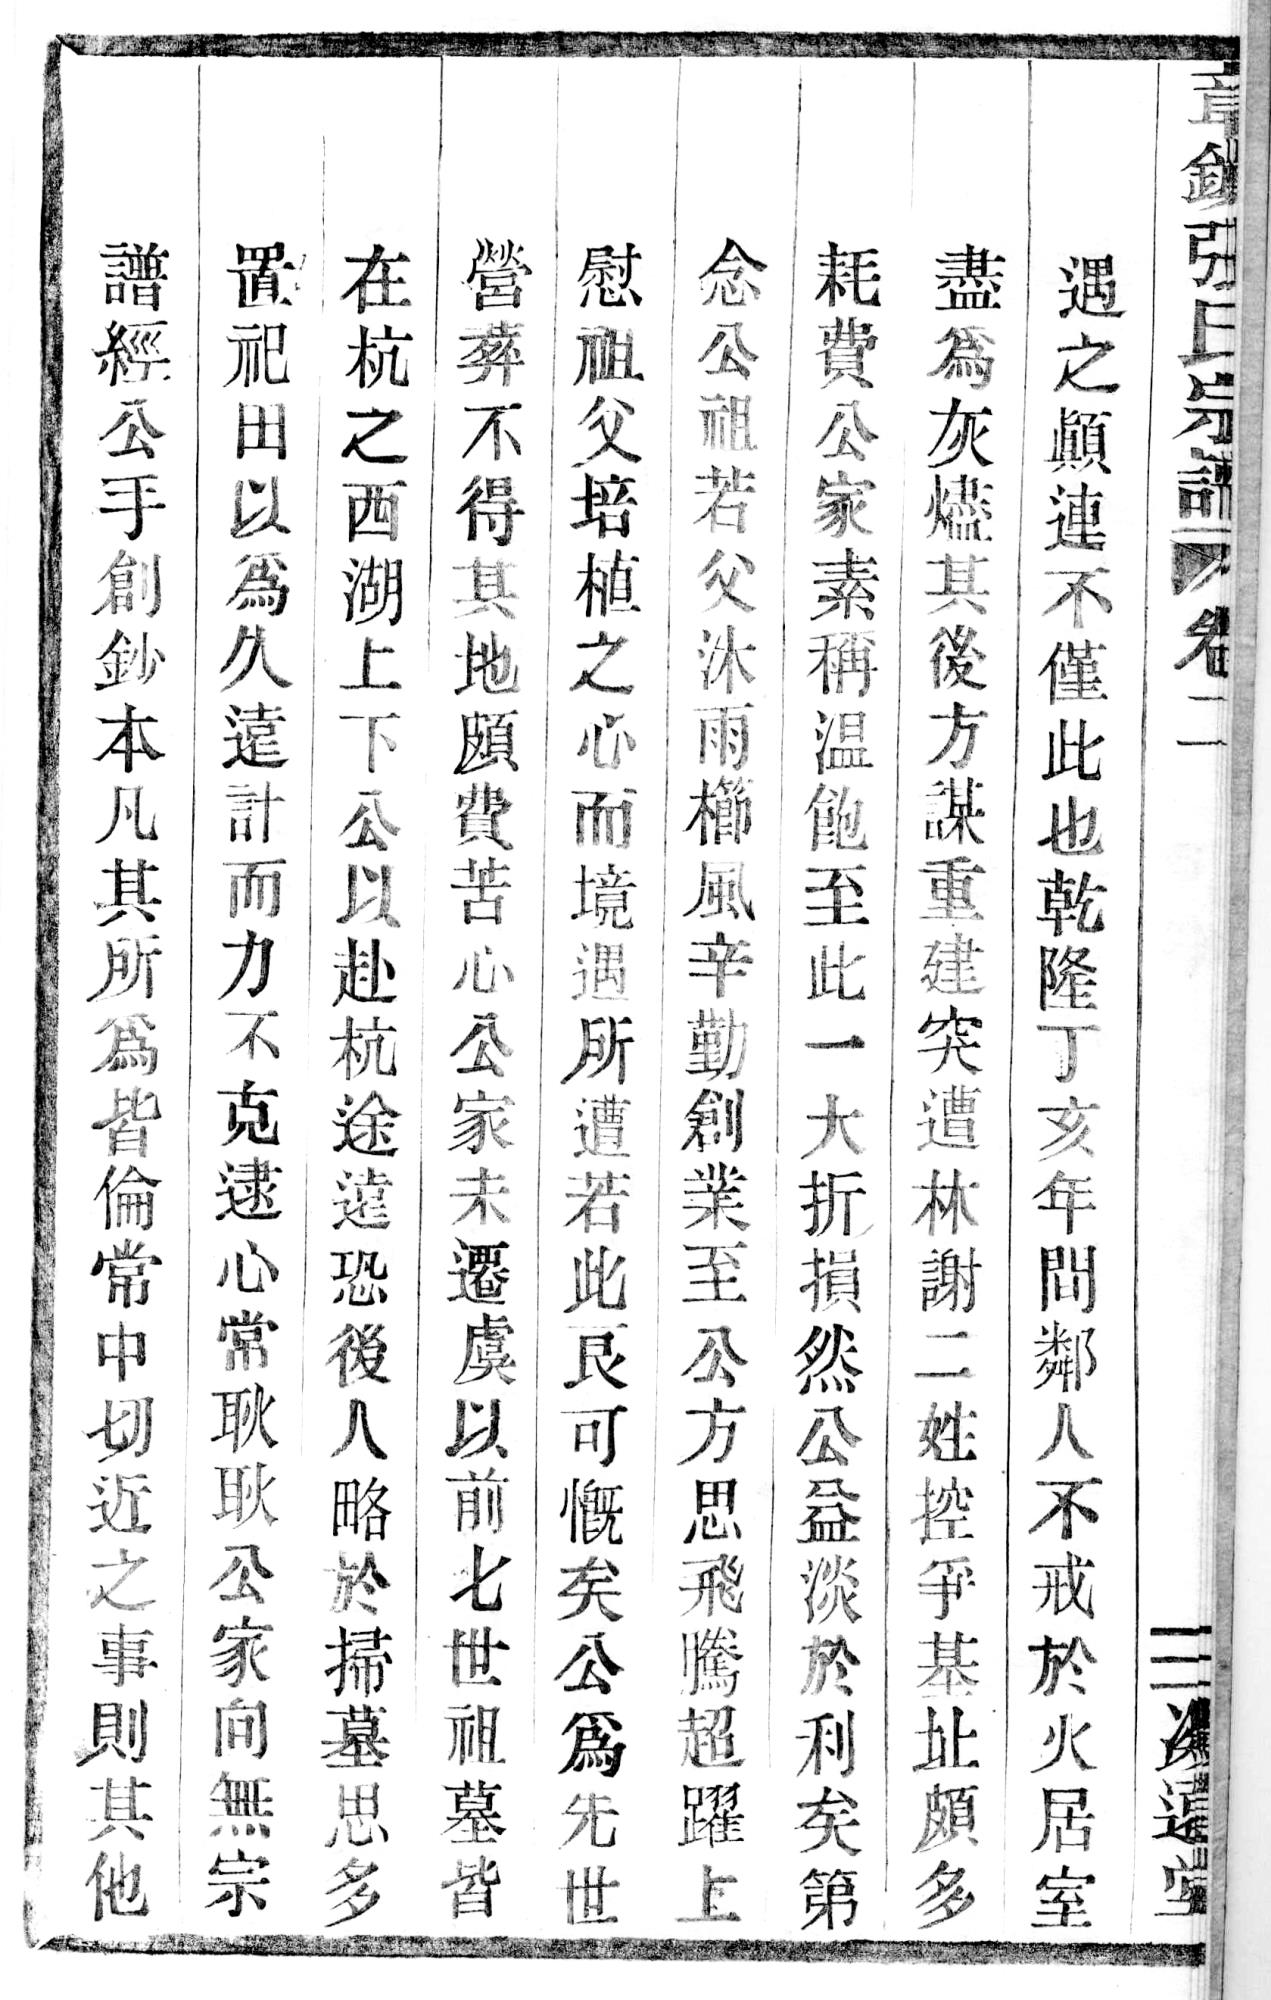 張氏宗譜 卷二
三
遇之顛連不僅此也乾隆丁亥年間鄰人不戒於火居室
盡爲灰燼其後方謀重建突遭林謝二姓控爭基址頗多
耗費公家素稱温飽至此一大折損然公益淡於利矣第
念公祖若父沐雨櫛風辛勤創業至公方思飛騰超躍上
慰祖父培植之心而境遇所遭若此良可慨矣公爲先世
營葬不得其地頗費苦心公家未遷虞以前七世祖墓皆
在杭之西湖上下公以赴杭途遠恐後人略於掃墓思多
置祀田以爲久遠計而力不克逮心常耿耿公家向無宗
譜經公手創鈔本凡其所爲皆倫常中切近之事則其他